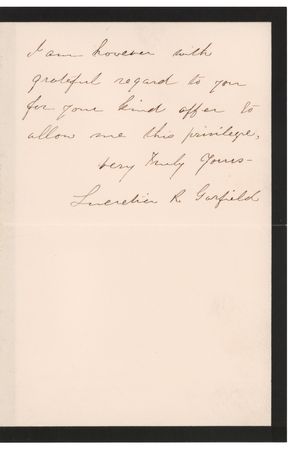 I am however with
grateful regard to you
for your kind offer to
allow me this privilege,
Very Truly Yours—
Lucretia R. Garfield